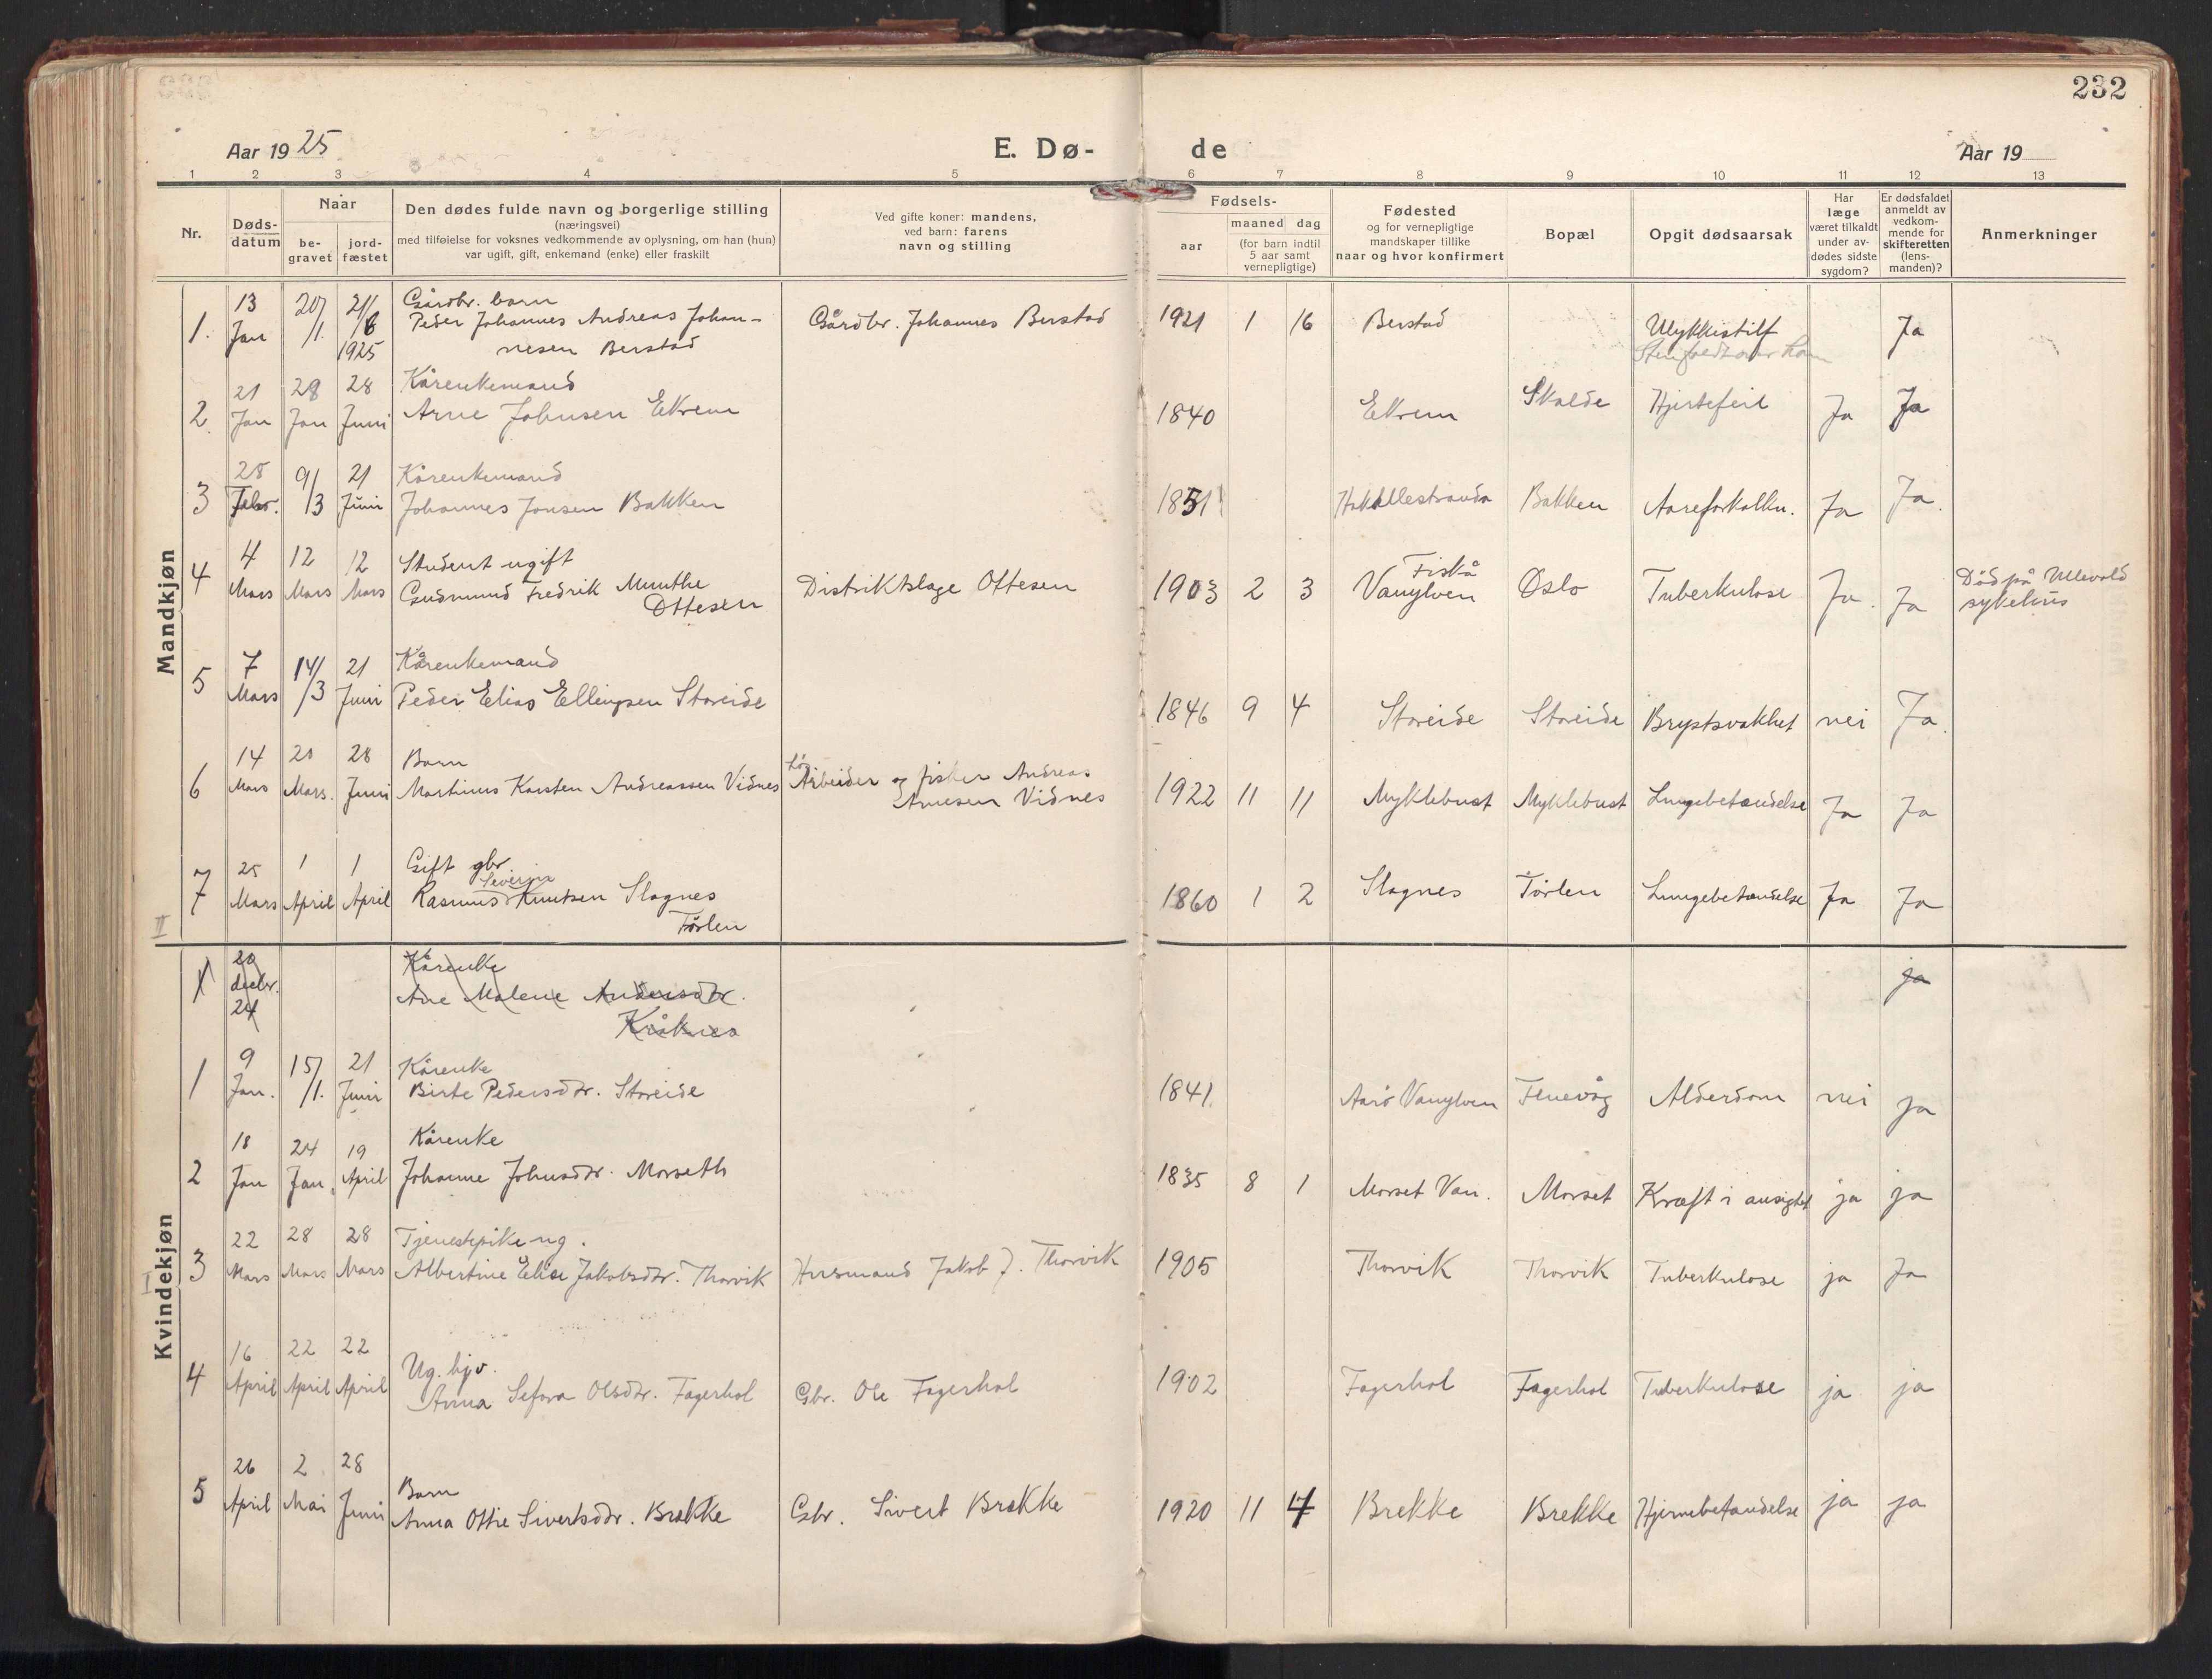 232
Aar 1925
E. Dø-
de
Aar 19
1 2 3 4 5 6 7 8 9 10 11 12 13
Nr.
Døds-
datum
Naar
be-
gravet
jord-
fæstet
Den dødes fulde navn og borgerlige stilling
(næringsvei)
med tilføielse for voksnes vedkommende av oplysning, om han (hun)
var ugift, gift, enkemand (enke) eller fraskilt
Ved gifte koner: mandens,
ved barn: farens
navn og stilling
Fødsels-
aar
maaned dag
(for barn indtil
5 aar samt
vernepligtige)
Fødested
og for vernepligtige
mandskaper tillike
naar og hvor konfirmert
Bopæl
Opgit dødsaarsak
Har
læge
været tilkaldt
under av-
dødes sidste
sygdom?
Er dødsfaldet
anmeldt av
vedkom-
mende for
skifteretten
(lens-
manden)?
Anmerkninger
Mandkjøn
1. 13 Jan 20/1. 21/6 1925
Gårdbr. barn
Peder Johannes Andreas Johan-
nesen Berstad
Gårdbr. Johannes Berstad
1921 1 16 Berstad Ulykkestilf Ja
2. 21 Jan 28 Jan 28 Juni
Kårenkemand
Arne Johnsen Ekrem
1840 Ekrem Skolde Hjertefeil Ja Ja
3 28 Febr. 9/3 21 Juni
Kårenkemand
Johannes Jonsen Bakken
1851 Hakallestranda Bakken Aareforkalkn. Ja Ja.
4 4 Mars 12 Mars 12 Mars
Student ugift
Gudmund Fredrik Munthe
Ottesen
Distriktslæge Ottesen
1903 2 3
Fiskå
Vanylven Oslo Tuberkulose Ja. Ja
Død på Ullevold
sykehus
5 7 Mars 14/3 21 Juni
Kårenkemand
Peder Elias Ellingsen Storeide
1846 9 4 Storeide Storeide Brystsvakhet nei Ja.
6 14 Mars 20 Mars. 28 Juni
Barn
Martinus Karsten Andreassen Vidnes
Arbeider og fisker Andreas
Arnesen Vidnes
1922 11 11 Myklebust Myklebust Lungebetændelse Ja Ja
7 25 Mars 1 April 1 April
Gift gbr
Severin
Rasmus Knutsen Slagnes
Tørlen
1860 1 2 Slagnes Tørlen Lungebetændelse Ja Ja
II
Kvindekjøn
1 20 decbr. 24
Kårenke
Ane Malene Andersdtr.
Kråknes
ja
1 9 Jan. 15/1. 21 Juni
Kårenke
Birte Pedersdtr. Storeide
1841. Aarø Vanylven Tenevåg Alderdom nei ja
2 18 Jan 24 Jan. 19 April
Kårenke
Johanne Johnsdtr. Morseth
1835 8 1 Morset Van. Morset Kræft i ansigtet ja ja
I
3 22 Mars 28 Mars 28 Mars
Tjenestepike ug.
Albertine Elise Jakobsdtr. Thorvik
Husmand Jakob J. Thorvik
1905 Thorvik Thorvik Tuberkulose ja Ja
4 16 April 22 April 22 April
Ug. hjv.
Anna Sefora Olsdtr. Fagerhol
Gbr. Ole Fagerhol
1902 Fagerhol Fagerhol Tuberkulose ja ja
5 26 April 2 Mai 28 Juni
Barn
Anna Ottie Sivertsdtr. Brekke
Gbr. Sivert Brekke
1920 11 4 Brekke Brekke Hjernebetændelse ja ja